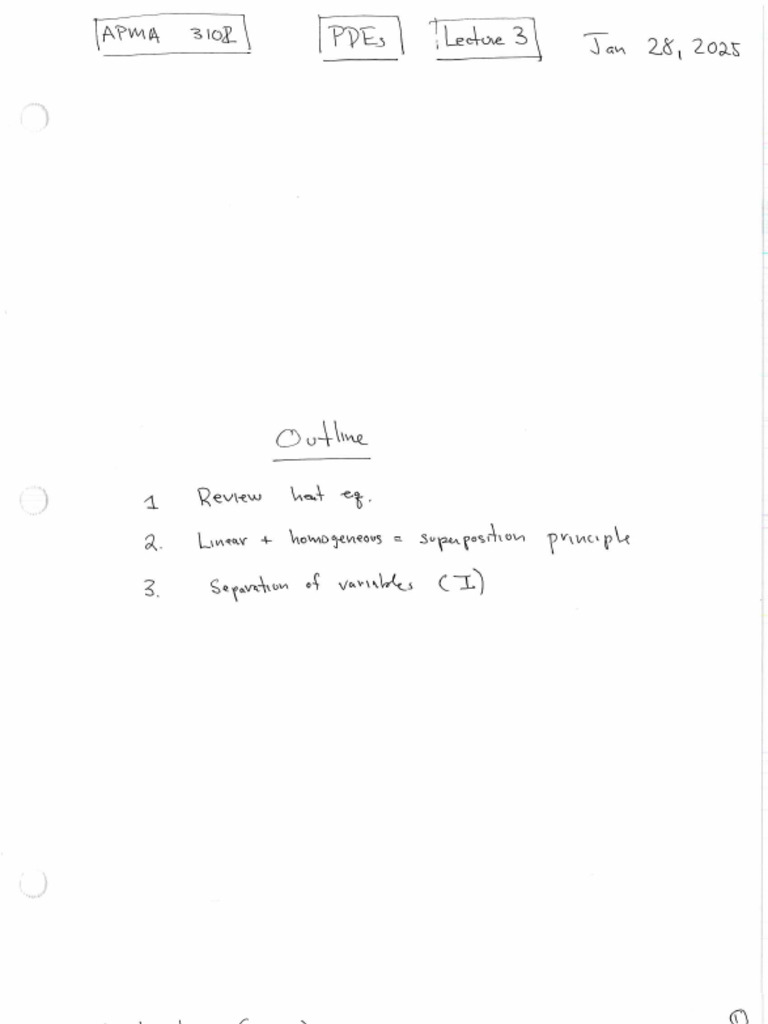 APMA 3102 PDEs Lecture 3 Jan 28, 2025
Outline
1 Review heat eq.
2. Linear + homogeneous = superposition principle
3. Separation of variables (I)
1